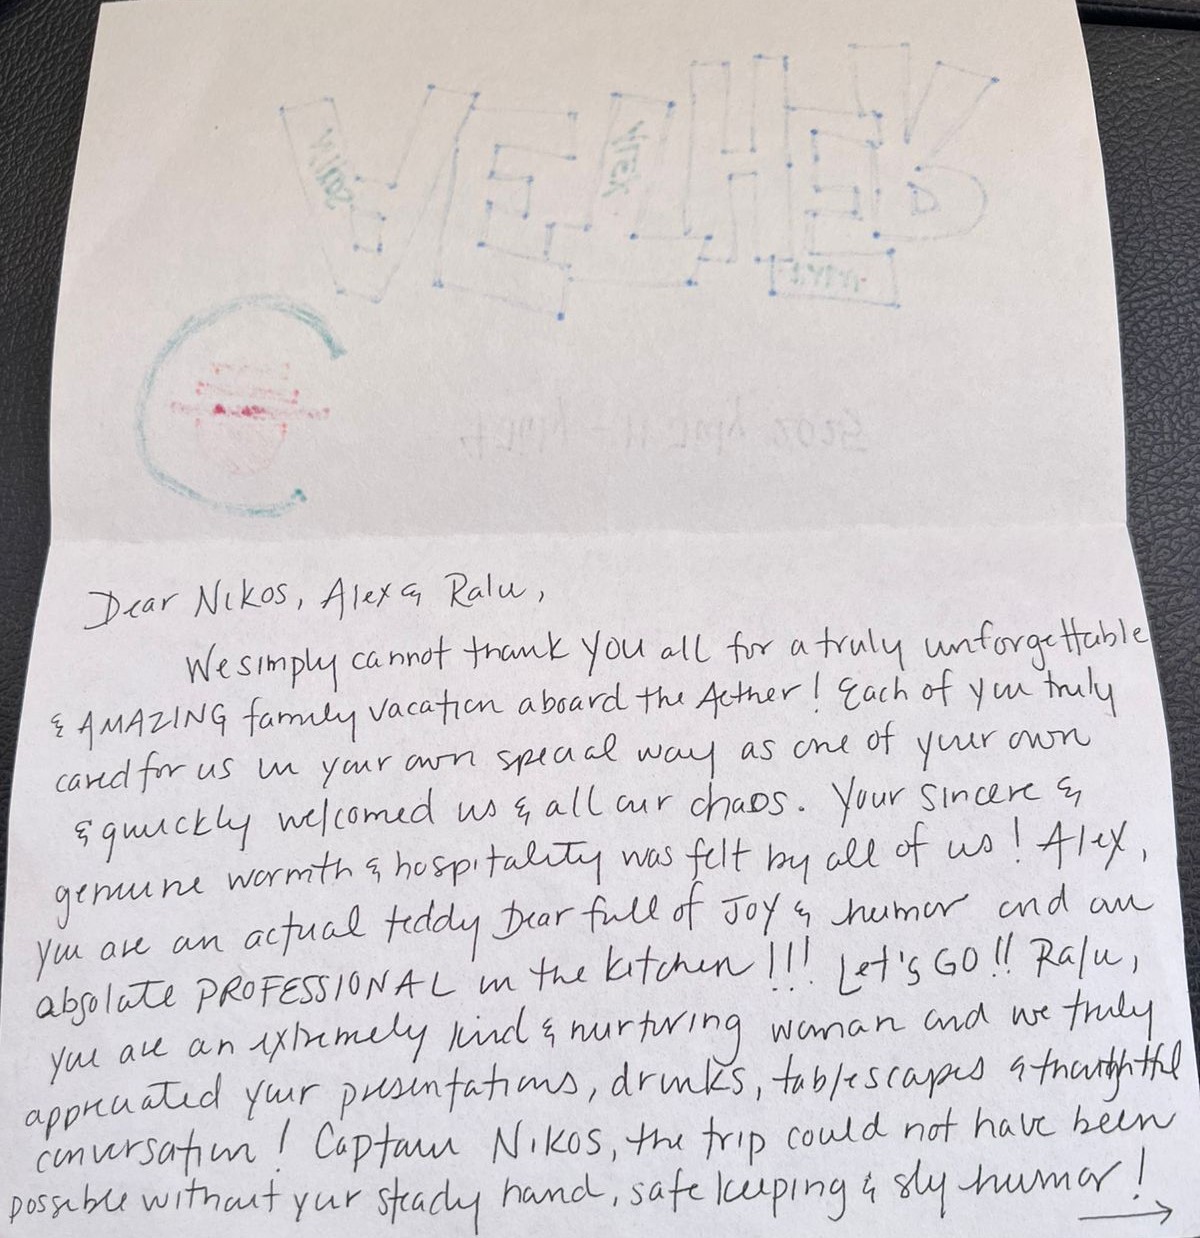 Dear Nikos, Alex & Ralu,
We simply cannot thank you all for a truly unforgettable
& AMAZING family vacation aboard the Aether! Each of you truly
cared for us in your own special way as one of your own
& quickly welcomed us & all our chaos. Your sincere &
genuine warmth & hospitality was felt by all of us! Alex,
you are an actual teddy bear full of Joy & humor and an
absolute PROFESSIONAL in the kitchen!!! Let's GO!! Ralu,
you are an extremely kind & nurturing woman and we truly
appreciated your presentations, drinks, tablescapes & thoughtful
conversation! Captain Nikos, the trip could not have been
possible without your steady hand, safe keeping & sly humor!